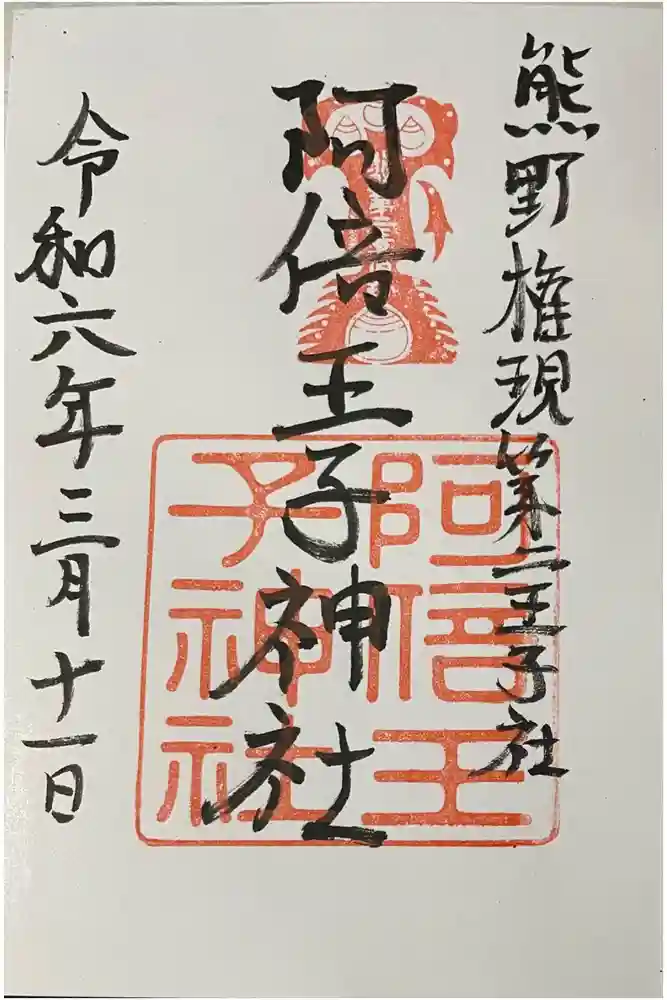 熊野権現第二王子社
阿倍王子神社
令和六年三月十一日
阿倍王
子神社